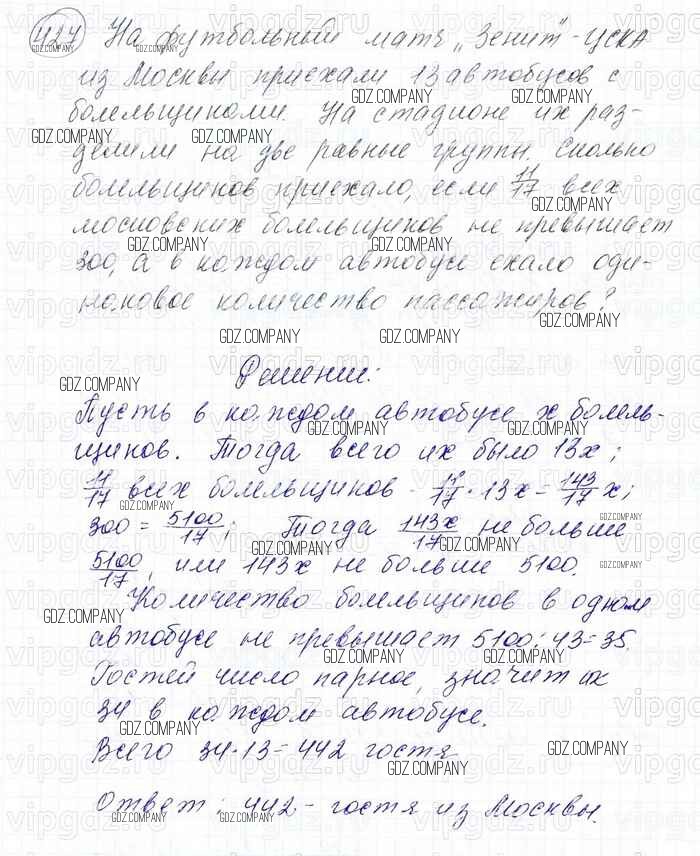 427 На футбольный матч „Зенит"-ЦСКА
из Москвы приехали 13 автобусов с
болельщиками. На стадионе их раз-
делили на две равные группы. Сколько
болельщиков приехало, если 11/17 всех
московских болельщиков не превышает
300, а в каждом автобусе ехало оди-
наковое количество пассажиров?
Решение:
Пусть в каждом автобусе x болель-
щиков. Тогда всего их было 13x;
11/17 всех болельщиков - 11/17 · 13x = 143/17 x;
300 = 5100/17; Тогда 143x/17 не больше
5100/17, или 143x не больше 5100.
Количество болельщиков в одном
автобусе не превышает 5100:43=35.
Гостей число парное, значит их
34 в каждом автобусе.
Всего 34·13=442 гостя
Ответ: 442 - гостя из Москвы.